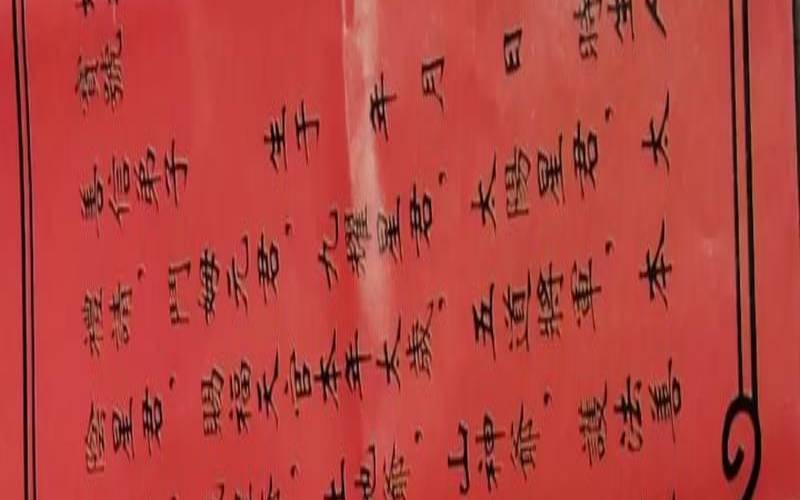 寶號
善信弟子 生于 年 月 日 時生人
禮請，鬥姆元君，九耀星君，太陽星君，太
陰星君，賜福天官本年太歲，五道將軍，本
土地爺，山神爺，護法善